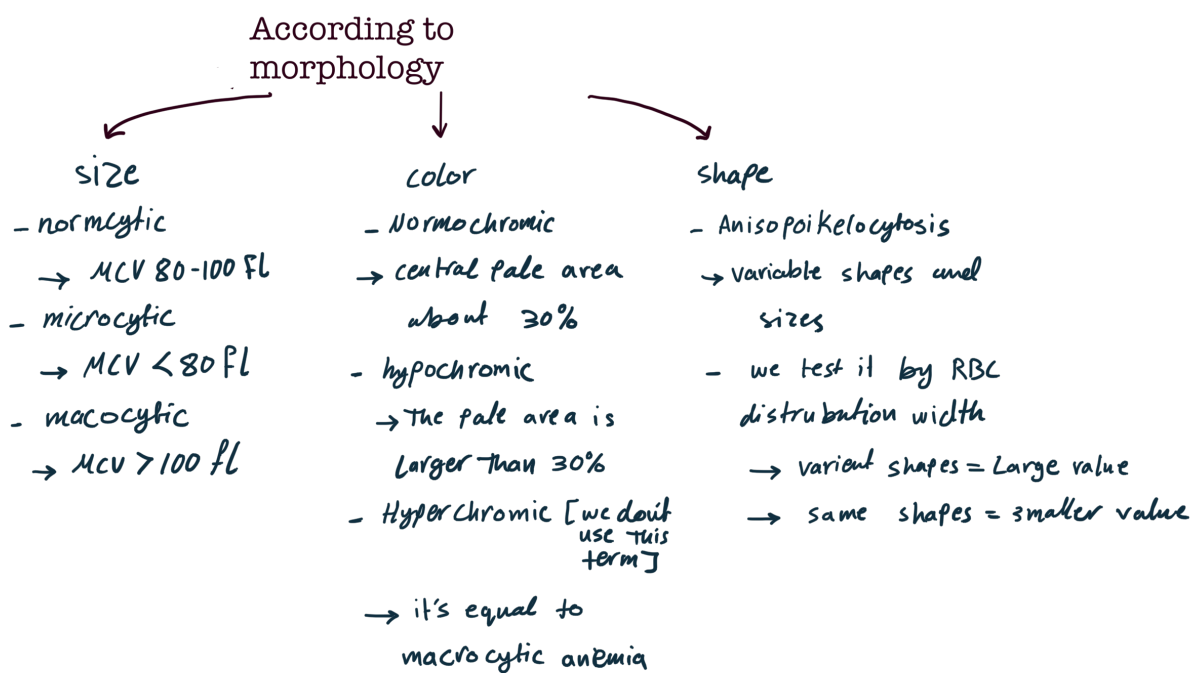 According to
morphology
size
- normcytic
→ MCV 80-100 fl
- microcytic
→ MCV < 80 fl
- macocytic
→ MCV > 100 fl
color
- Normochromic
→ central pale area
about 30%
- hypochromic
→ The pale area is
larger than 30%
- Hyperchromic [we don't
use this
term]
→ it's equal to
macrocytic anemia
shape
- Anisopoikelocytosis
→ variable shapes and
sizes
- we test it by RBC
distrubution width
→ varient shapes = Large value
→ same shapes = smaller value